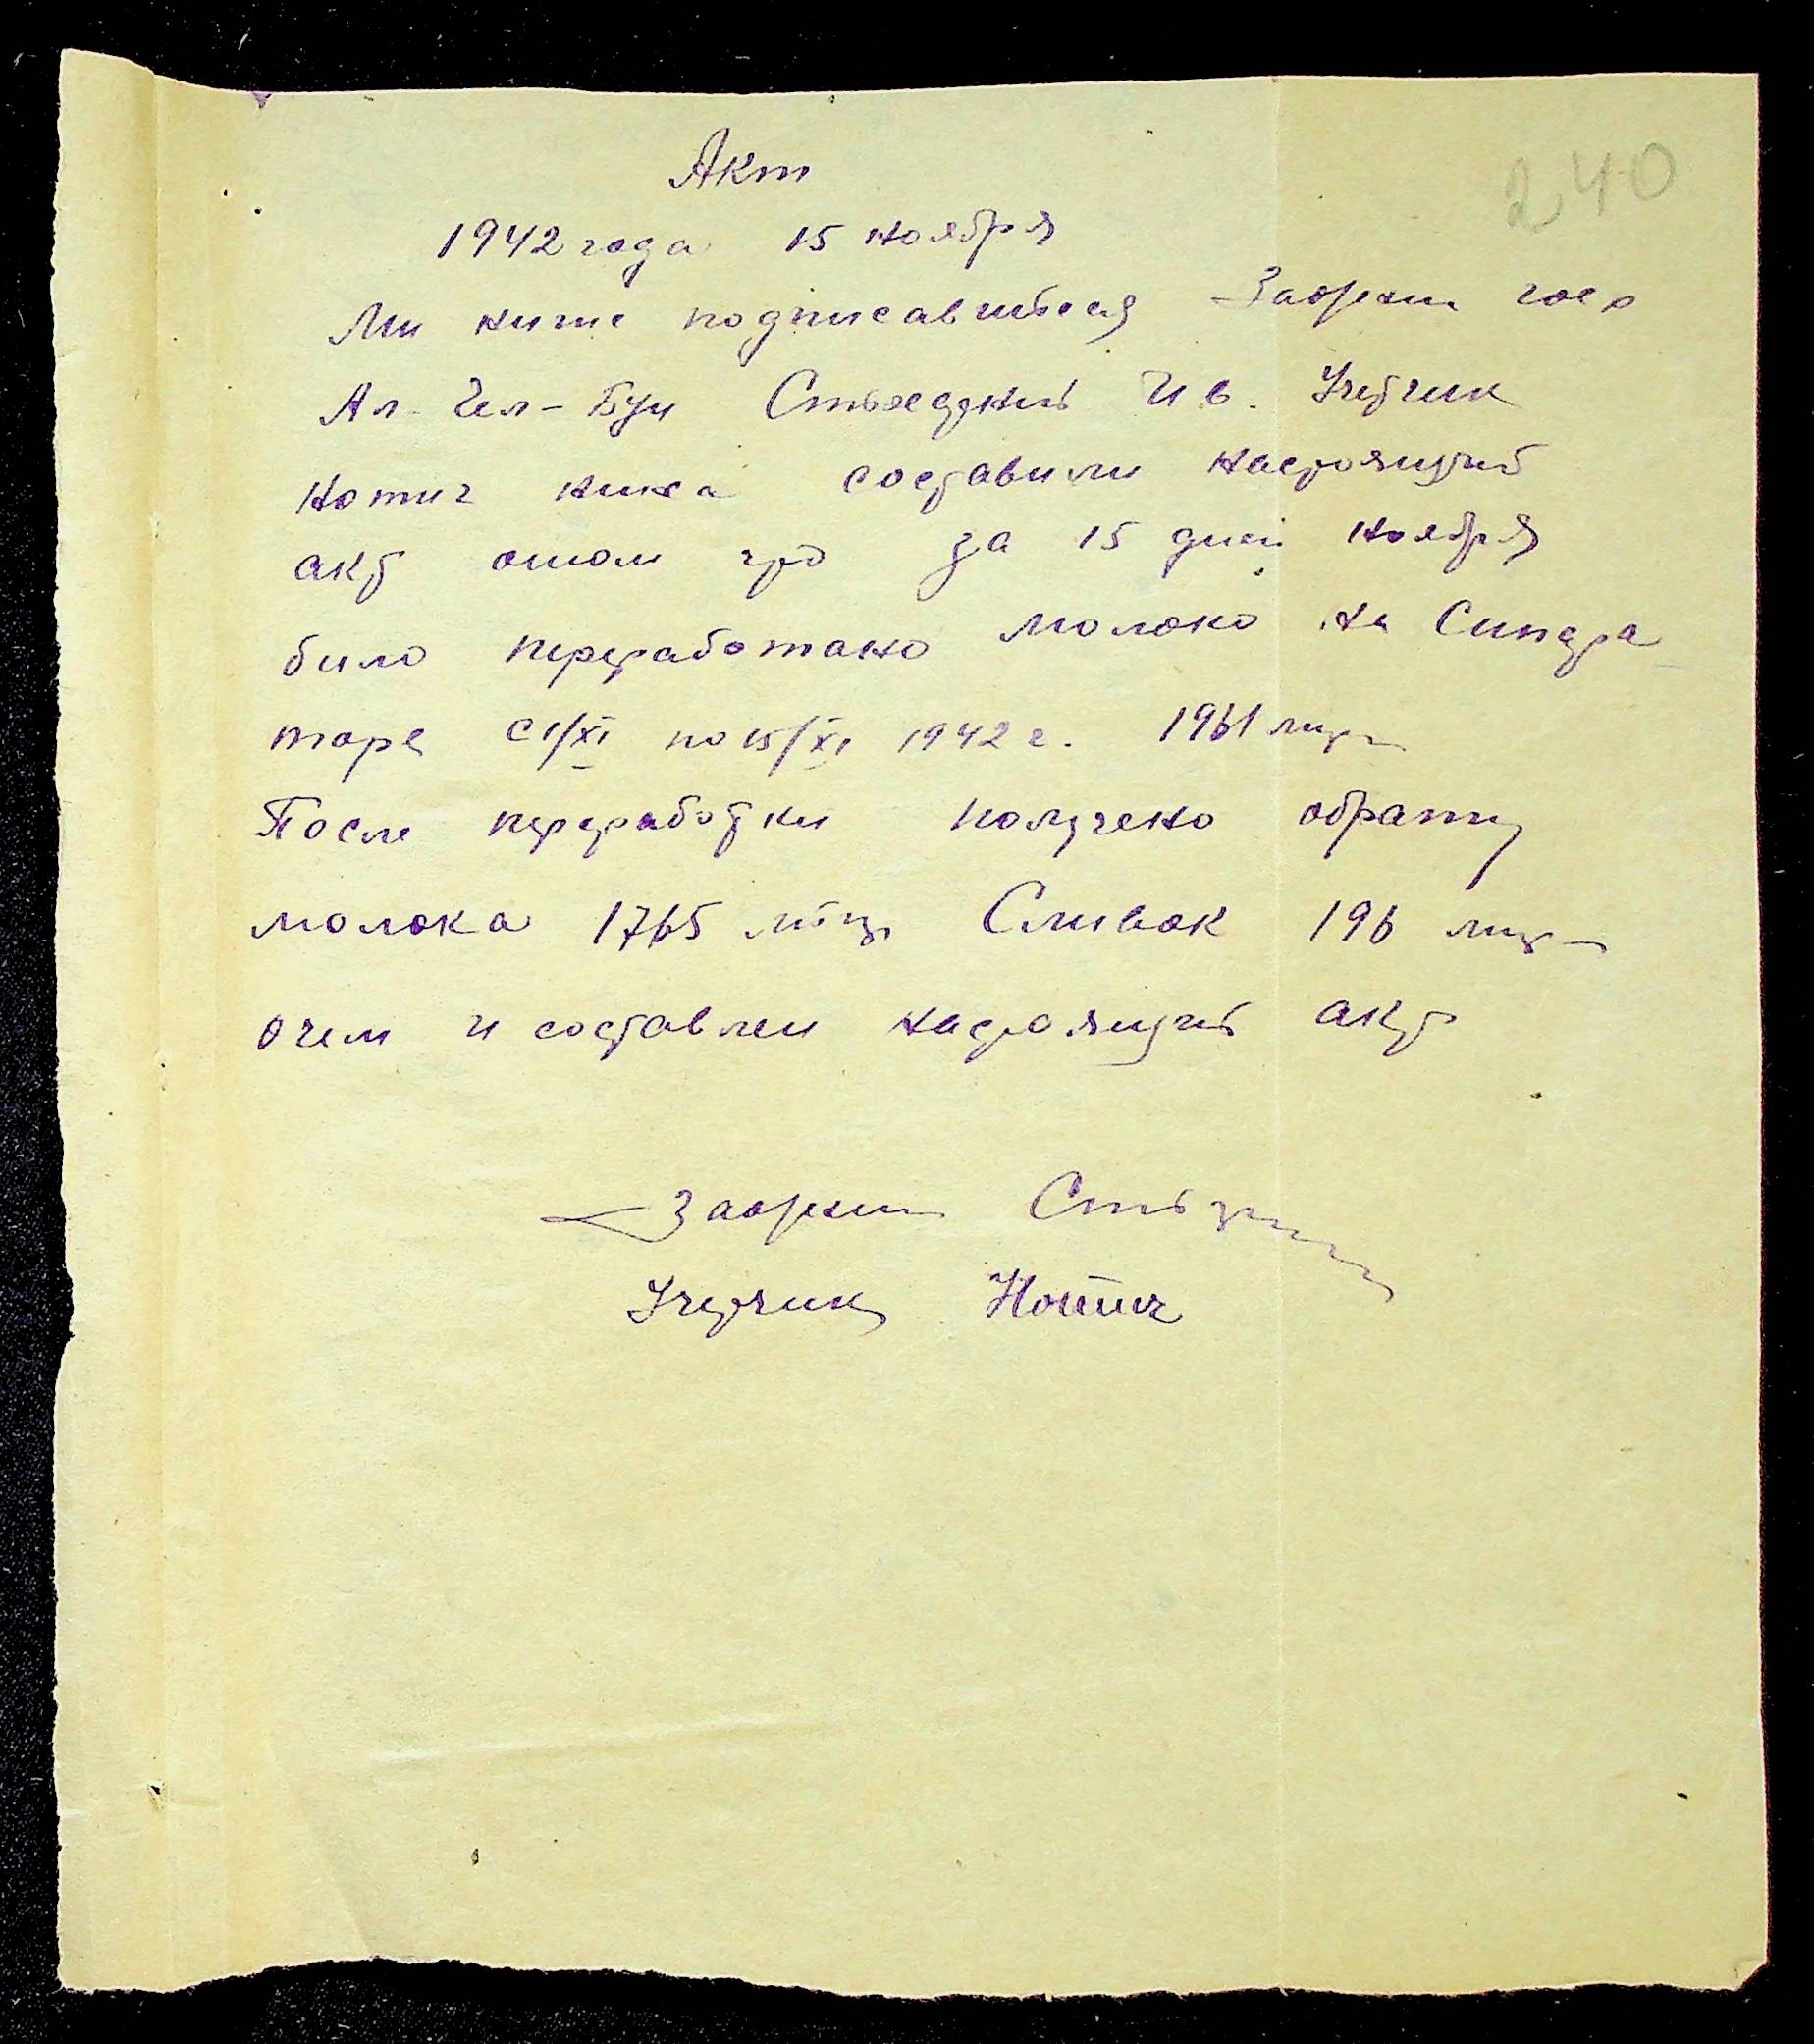 240
Акт
1942 года 15 ноября
Ми ниже подписавшиеся
Ал-Чел-Бун Ив. Учетчик
Нотич составили настоящий
акт отом что за 15 дней ноября
било переработано молоко на Сипара
торе с 1/XI по 15/XI 1942 г. 1961 литр
После переработки получено обрату
молока 1765 литр Сливок 196 литр
Очем и составлен настоящий акт
Учетчик Нотич